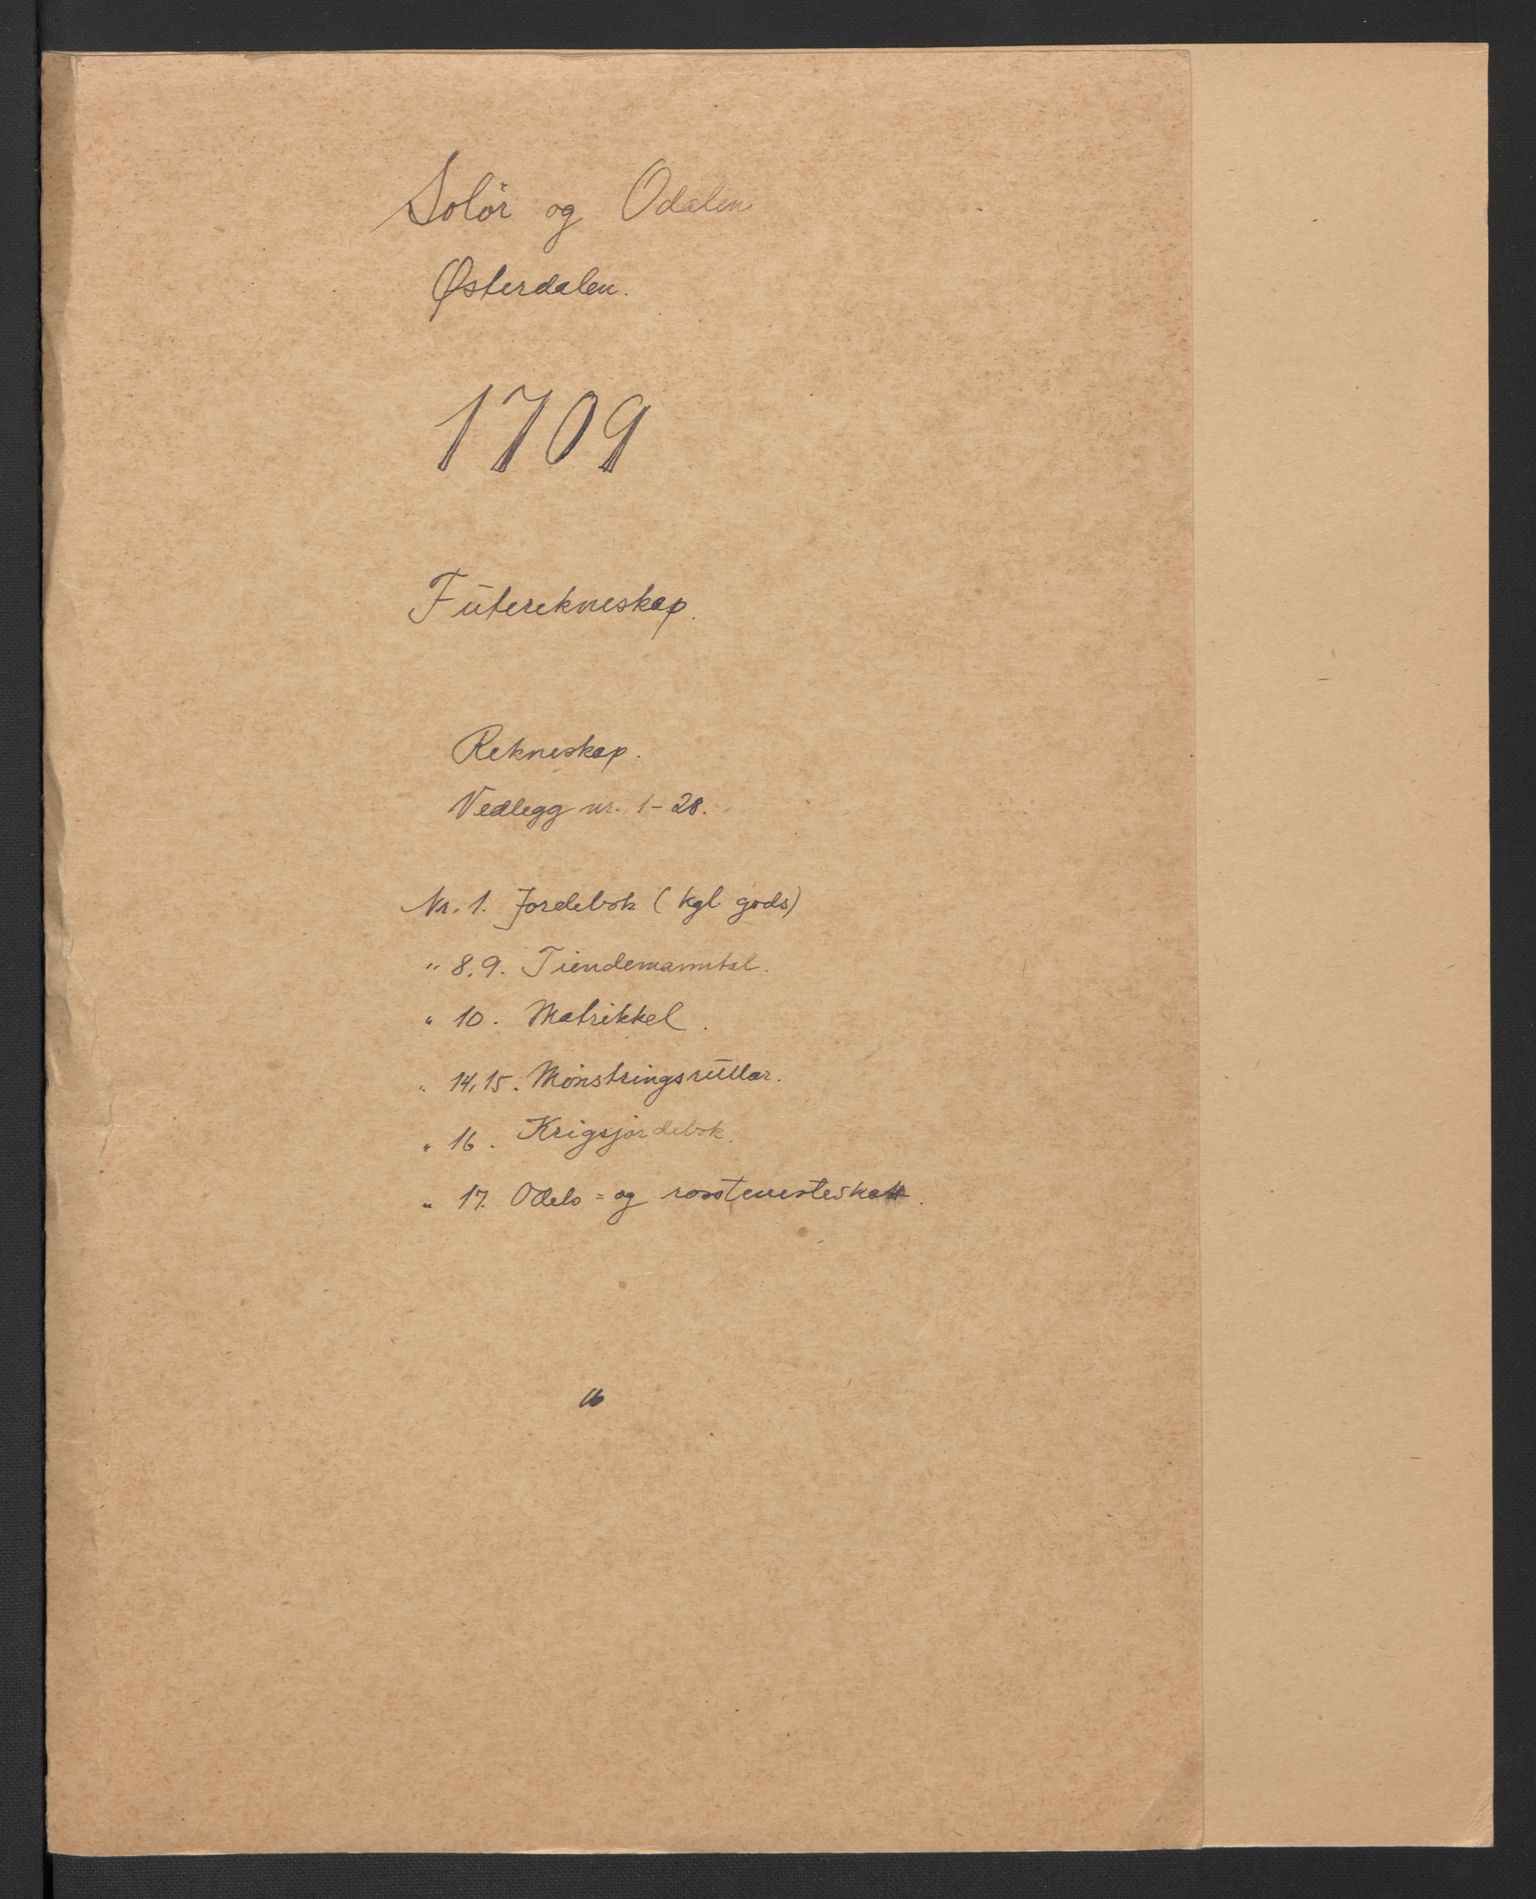 Solør og Odalen
Østerdalen.
1709
Futerekneskap.
Rekneskap.
Vedlegg nr. 1-28.
Nr. 1. Jordebok (kgl. gods)
" 8.9. Tiendemanntal.
" 10. Matrikkel.
" 14,15. Mønstringsrullar.
" 16. Krigsjordebok.
" 17. Odels- og rosstenesteskatt.